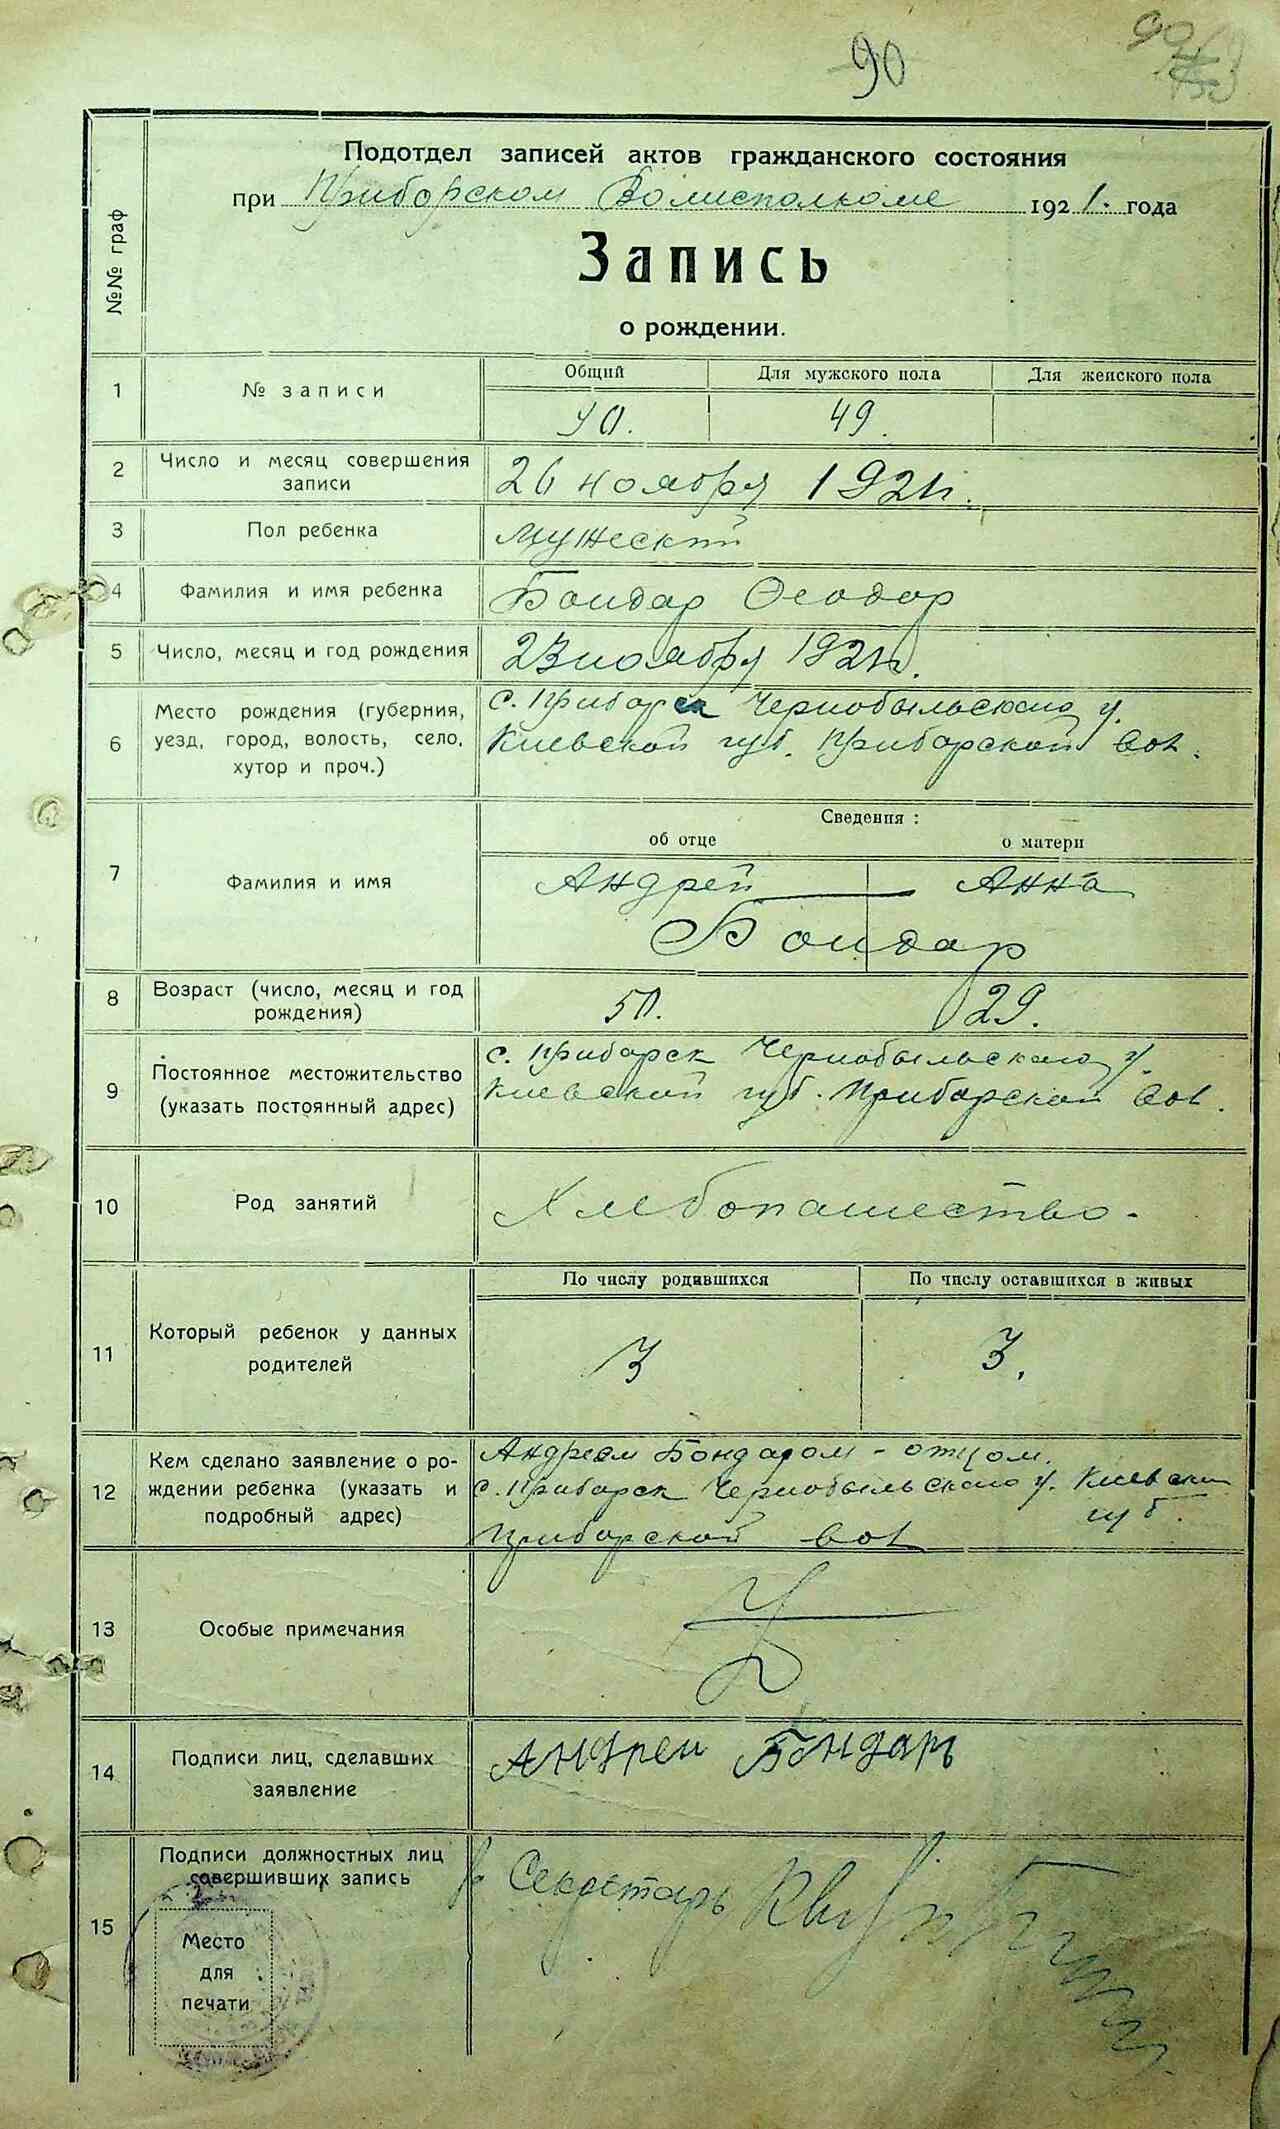 90
Подотдел записей актов гражданского состояния
при Приборском Волисполкоме 1921. года
Запись
о рождении.
№№ граф
1 № записи
Общий Для мужского пола Для женского пола
90. 49.
2 Число и месяц совершения записи
26 ноября 1921г.
3 Пол ребенка
мужеский
4 Фамилия и имя ребенка
Бондар Феодор
5 Число, месяц и год рождения
23 ноября 1921г.
6 Место рождения (губерния,
уезд, город, волость, село,
хутор и проч.)
с. Приборск Чернобыльского у.
Киевской губ. Приборской вол.
Сведения:
об отце о матери
7 Фамилия и имя
Андрей Анна
Бондар
8 Возраст (число, месяц и год
рождения)
50. 29.
9 Постоянное местожительство
(указать постоянный адрес)
с. Приборск Чернобыльского у.
Киевской губ. Приборской вол.
10 Род занятий
Хлебопашество.
11 Который ребенок у данных
родителей
По числу родившихся По числу оставшихся в живых
3 3.
12 Кем сделано заявление о ро-
ждении ребенка (указать и
подробный адрес)
Андреем Бондаром - отцом.
с. Приборск Чернобыльского у. Киевской
губ.
Приборской вол
13 Особые примечания
14 Подписи лиц, сделавших
заявление
Андреи Бондарь
15 Подписи должностных лиц
совершивших запись
Секретарь
Место
для
печати